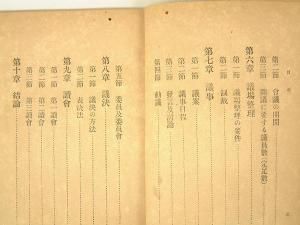 目次
第二節 會議の用間
第三節 開議に要する議員數(定足數)
第六章 議場整理
第一節 議場整理の要件
第二節 制裁
第七章 議事
第一節 議案
第二節 議事日程
第三節 發言及討論
第四節 動議
第五節 委員及委員會
第八章 議決
第一節 議決の方法
第二節 表決法
第九章 讀會
第一節 第一讀會
第二節 第二讀會
第三節 第三讀會
第十章 結論